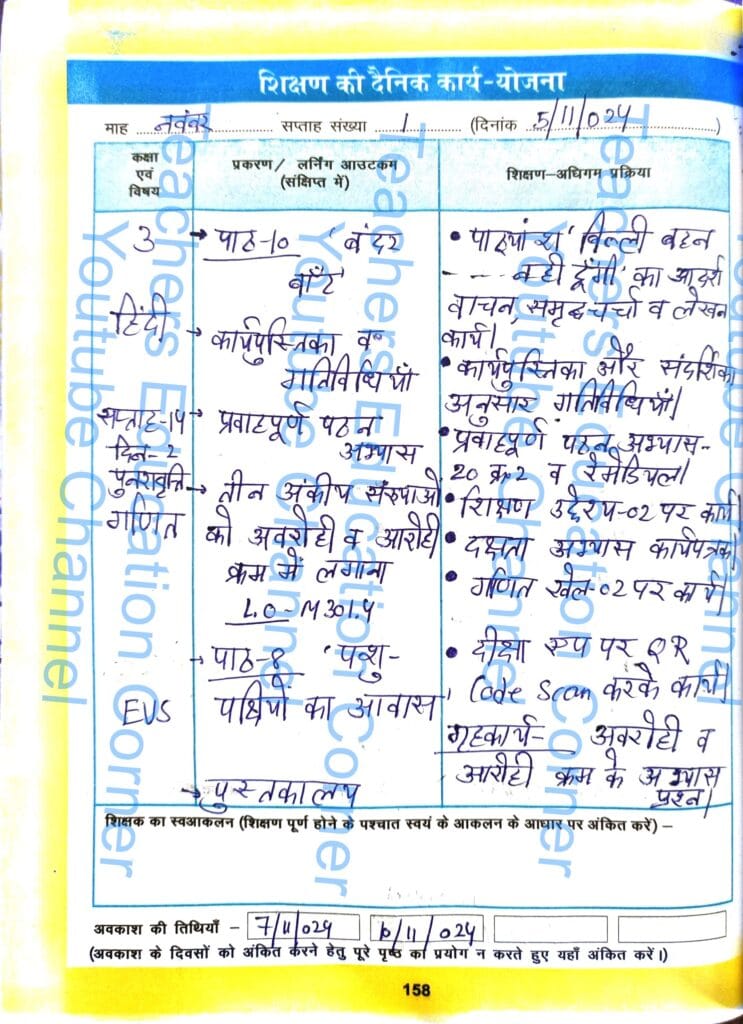 शिक्षण की दैनिक कार्य-योजना
माह नवंबर सप्ताह संख्या 1 (दिनांक 5/11/024)
कक्षा एवं विषय
प्रकरण/ लर्निंग आउटकम (संक्षिप्त में)
शिक्षण-अधिगम प्रक्रिया
3
हिंदी
सप्ताह-14
दिन-2
पुनरावृत्ति
गणित
EVS
→ पाठ-10 'बंदर
बाँट'
→ कार्यपुस्तिका व
गतिविधियाँ
→ प्रवाहपूर्ण पठन
अभ्यास
→ तीन अंकीय संख्याओं
को अवरोही व आरोही
क्रम में लगाना
L.O-M301.4
→ पाठ-8 'पशु-
पक्षियों का आवास'
→ पुस्तकालय
• पाठ्यांश 'बिल्ली बहन
---- नहीं दूँगी' का आदर्श
वाचन, समृद्ध चर्चा व लेखन
कार्य।
• कार्यपुस्तिका और संदर्शिका
अनुसार गतिविधियाँ।
• प्रवाहपूर्ण पठन अभ्यास-
20 क्र०2 व रेमेडियल।
• शिक्षण उद्देश्य-02 पर कार्य।
• दक्षता अभ्यास कार्यपत्रक।
• गणित खेल-02 पर कार्य।
• दीक्षा एप पर QR
Code Scan करके कार्य।
गृहकार्य- अवरोही व
आरोही क्रम के अभ्यास
प्रश्न।
शिक्षक का स्वआकलन (शिक्षण पूर्ण होने के पश्चात स्वयं के आकलन के आधार पर अंकित करें) –
अवकाश की तिथियाँ – 7/11/024 10/11/024
(अवकाश के दिवसों को अंकित करने हेतु पूरे पृष्ठ का प्रयोग न करते हुए यहाँ अंकित करें।)
158
Teachers Education Corner
Youtube Channel
Teachers Education Corner
Youtube Channel
Teachers Education Corner
Youtube Channel